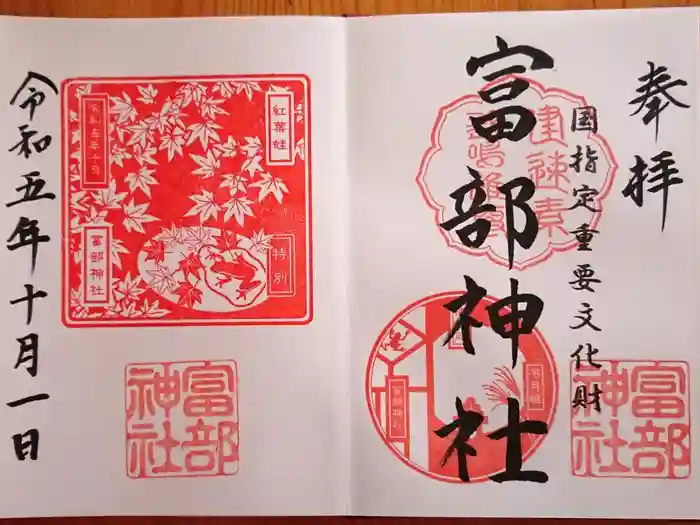 奉拝
国指定重要文化財
富部神社
富部神社
富部神社
紅葉蛙
特別
令和五年十月
富部神社
富部神社
令和五年十月一日